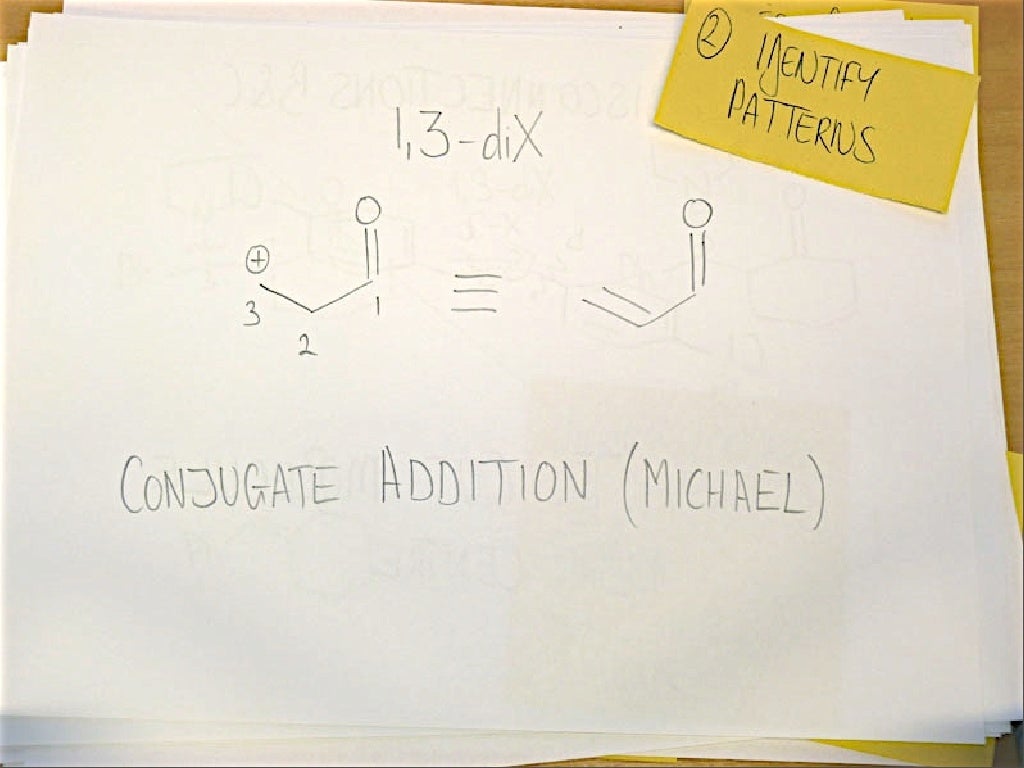 ② IDENTIFY
PATTERNS
1,3-diX
O
O
⊕
3
1
≡
2
CONJUGATE ADDITION (MICHAEL)